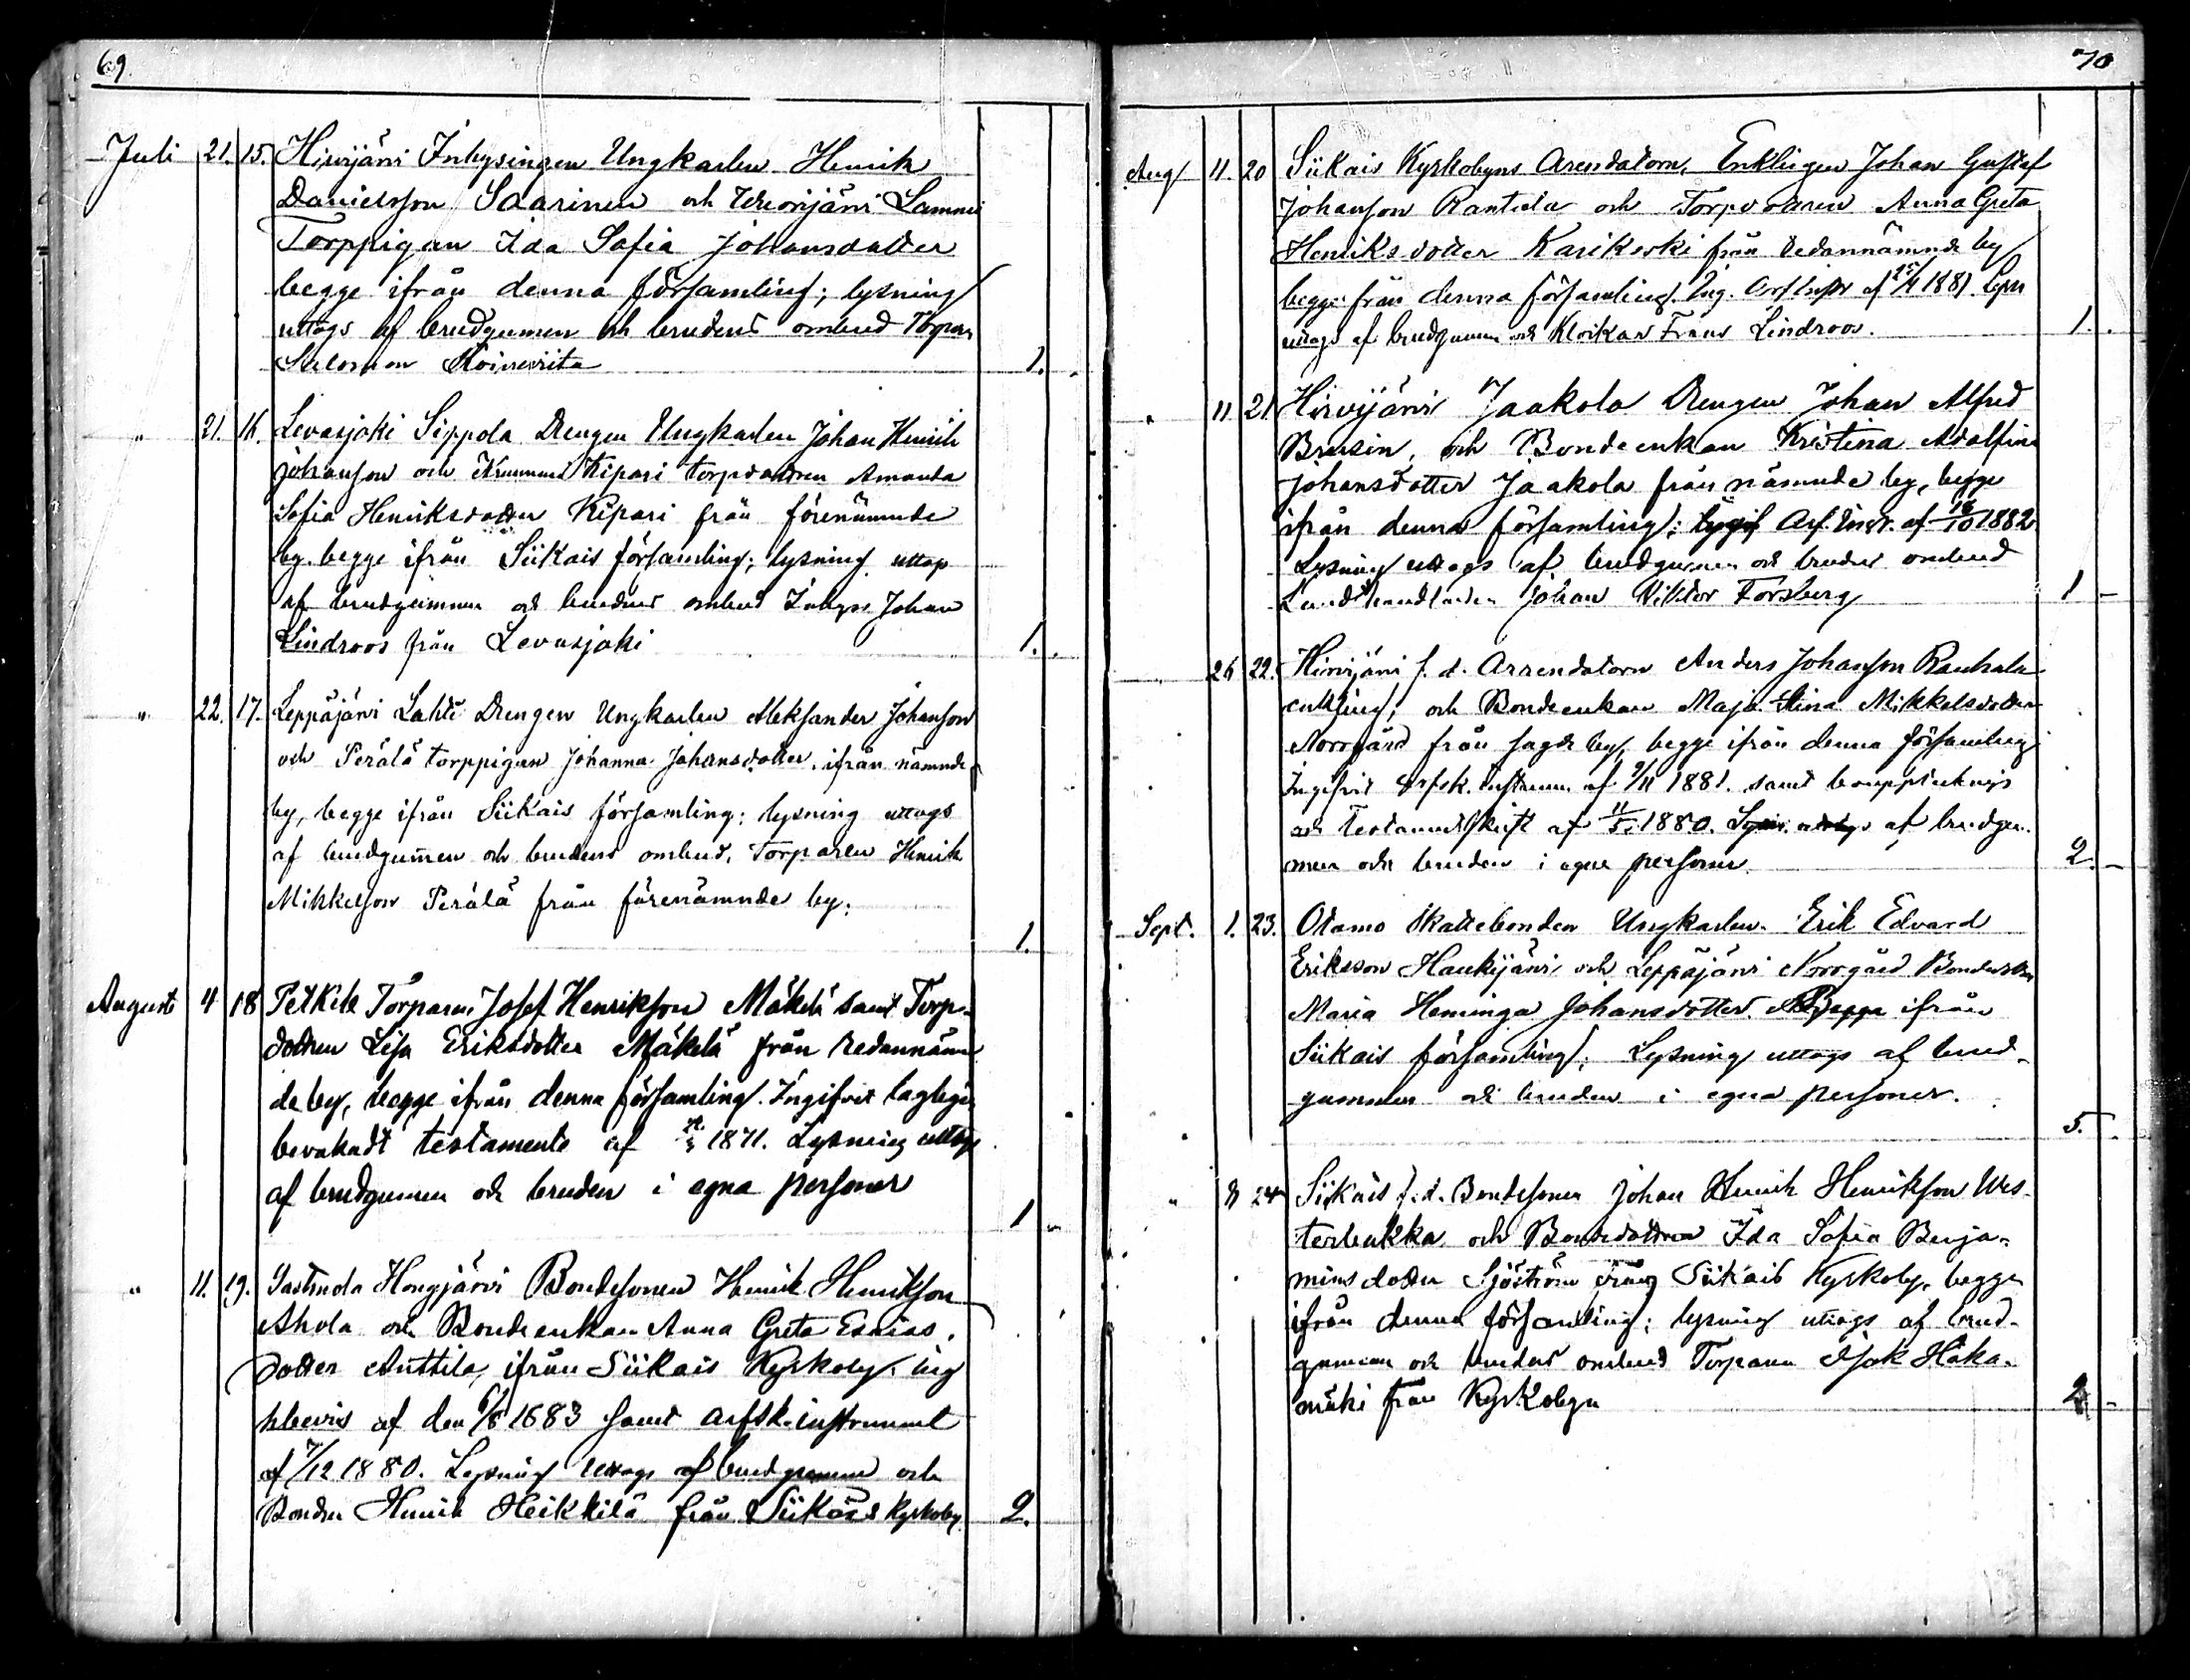 69.
Juli 21. 15. Hirvijärvi Inhysingen Ungkarlen Henrik
Danielsson Saarinen och Lammi
Torppigan Ida Sofia Johansdotter
begge ifrån denna församling; lysning
uttogs af brudgumen och brudens ombud Torparn
Salomon Koivuvita 1.
" 21. 16. Levasjoki Sippola Drengen Ungkarlen Johan Henrik
Johanson och Kipari torpdottren Amanda
Sofia Henriksdotter Kipari från förenämnde
by, begge ifrån Siikais församling; lysning uttogs
af brudgummen och brudens ombud Johan
Lindroos från Levasjoki 1.
" 22. 17. Leppäjärvi Lahti Drengen Ungkarlen Aleksander Johanson
och Perälä torppigan Johanna Johansdotter, ifrån nämnde
by, begge ifrån Siikais församling; lysning uttogs
af brudgumen och brudens ombud, Torparen Henrik
Mikkelson Perälä från förenämnde by. 1.
Augusti 4 18 Torparen Josef Henrikson Mäkelä samt Torp-
dottren Lisa Eriksdotter Mäkelä från redannämn-
de by, begge ifrån denna församling. Ingifvit lagligen
bevakadt testamente af 1871. Lysning uttogs
af brudgumen och bruden i egna personer 1
" 11. 19. Hongjärvi Bondesonen Henrik Henrikson
Ahola och Bondeenkan Anna Greta Esaias-
dotter Anttila, ifrån Siikais Kyrkoby. Ing
af den 6/8 1883 samt arfsk. instrument
af 7/12 1880. Lysning uttogs af brudgumme och
Bonden Henrik Heikkilä från Siikais Kyrkoby. 2.
70
Aug 11. 20 Siikais Kyrkobyns Arendatorn, Enklingen Johan Gustaf
Johanson Rantala och Torpdottren Anna Greta
Henriksdotter Karikoski från redannämnde by
begge från denna församling. Ing. Arf Instr af 1881. Lysn
uttogs af brudgumen och Klockar Frans Lindroos. 1.
" 11 21. Hirvijärvi Jaakola Drengen Johan Alfred
Brusin, och Bondeenkan Kristina Adolfina
Johansdotter Jaakola från nämnde by, begge
ifrån denna församling; Arf. Instr. af 18/10 1882
Lysning uttogs af brudgumen och brudens ombud
Landthandlaren Johan Viktor Forsberg 1 -
26 22. Hirvijärvi f. d. Arrendatorn Anders Johanson Rauhala
enkling, och Bondeenkan Maja Stina Mikkelsdotter
Norrgård från sagde by, begge ifrån denna församling
Ingifvit arfsk. instrum. af 9/11 1881. samt bouppteknings
och Testamentskrift af 11/5 1880. Lysn. uttogs af brudgu-
men och bruden i egne personer. 2. -
Sept. 1. 23. Otamo Skattebonden Ungkarlen Erik Edvard
Eriksson Haukijärvi och Leppäjärvi Norrgård
Maria Heminga Johansdotter. Begge ifrån
Siikais församling; Lysning uttogs af brud-
gummen och bruden i egna personer. 5.
" 8 24 Siikais f. d. Bondesonen Johan Henrik Henrikson Wes-
terbukka och Bondedottren Ida Sofia Benja-
minsdotter Sjöström från Siikais Kyrkoby, begge
ifrån denna församling; lysning uttogs af brud-
gumen och brudens ombud Torparen Isak Haka-
mäki från Kyrkobyn 2 -